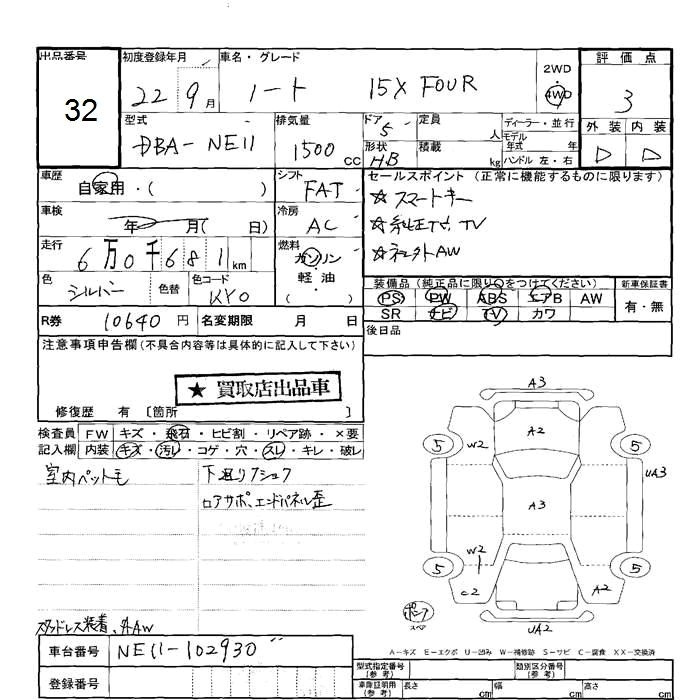 出品番号 初度登録年月 車名・グレード 2WD 評価点
32 22 9月 ノート 15X FOUR 4WD 3
型式 排気量 ドア 定員 ディーラー・並行 外装 内装
DBA-NE11 1500cc 5 人 モデル年式 年 D D
形状 積載 ハンドル 左・右
HB kg
車歴 シフト セールスポイント (正常に機能するものに限ります)
自家用・( ) FAT ☆スマートキー
車検 冷房 ☆純正ナビ、TV
年 月( 日) AC ☆ネオ外AW
走行 燃料
6万0千681km ガソリン
色 色替 色コード 軽油 装備品 (純正品に限り○をつけてください) 新車保証書
シルバー KY0 ( ) PS PW ABS エアB AW 有・無
R券 10640円 名変期限 月 日 SR ナビ TV カワ
注意事項申告欄 (不具合内容等は具体的に記入して下さい) 後日品
★ 買取店出品車
修復歴 有 〔箇所 〕
検査員 FW キズ・飛石・ヒビ割・リペア跡・×要
記入欄 内装 キズ・汚レ・コゲ・穴・スレ・キレ・破レ
室内ペット毛 下廻りフシュフ
ロアサポ、エンドパネル歪
A3
A2
5 W2 5
UA3
A3
W2
5 5
C2 A2
ポンプ
スペア
UA2
スタッドレス装着、外AW
A-キズ E-エクボ U-凹み W-補修跡 S-サビ C-腐食 XX-交換済
車台番号 NE11-102930
型式指定番号(参考) 類別区分番号(参考)
登録番号
車庫証明用(参考) 長さ cm 幅 cm 高さ cm